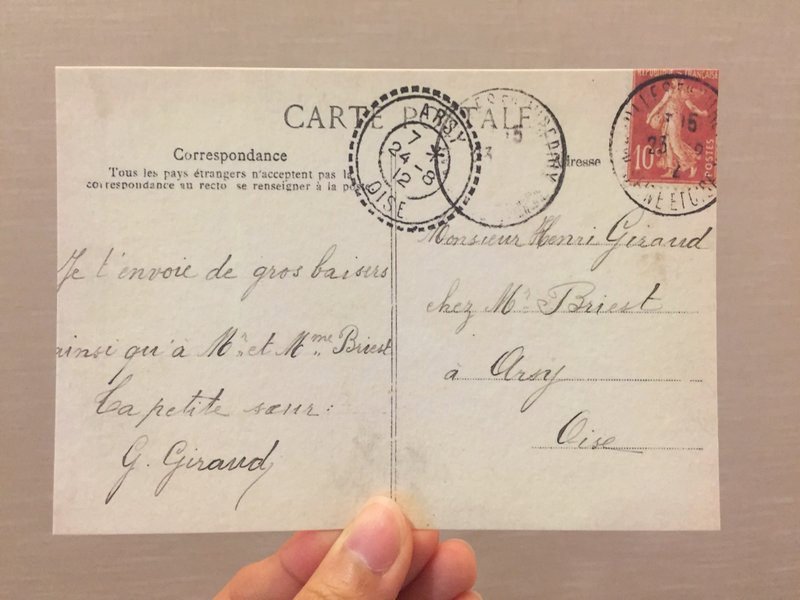 CARTE POSTALE
Correspondance
Tous les pays étrangers n'acceptent pas la
correspondance au recto se renseigner à la poste
Adresse
Je t'envoie de gros baisers
ainsi qu'à Mr. et Mme. Briest
Ta petite sœur:
G. Giraud
Monsieur Henri Giraud
chez Mr. Briest
à Arsy
Oise
ARSY
7 *
24 - 8
12
OISE
15
3
REPUBLIQUE FRANÇAISE
10 POSTES
15
23
ET OISE